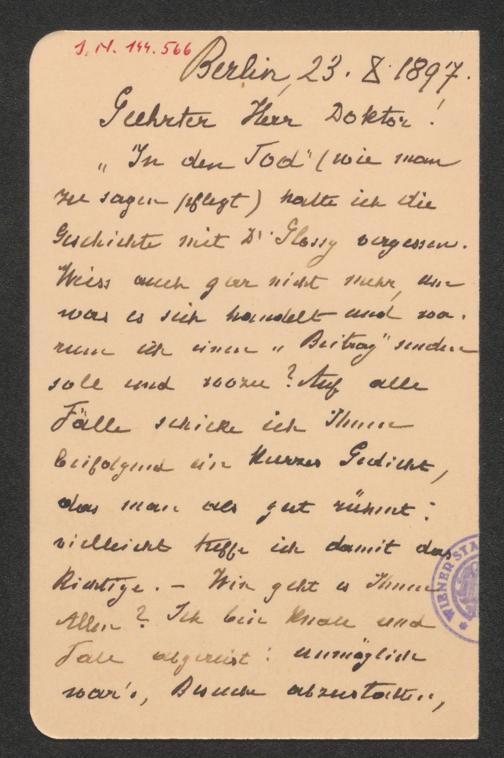 J. N. 144.566
Berlin, 23. X. 1897.
Geehrter Herr Doktor!
„In den Tod" (wie man
zu sagen pflegt) hatte ich die
Geschichte mit Dr. Glossy vergessen.
Weiss auch gar nicht mehr, um
was es sich handelt und wa-
rum ich einen „Beitrag" senden
soll und wozu? Auf alle
Fälle schicke ich Ihnen
beifolgend ein kurzes Gedicht,
das man als gut rühmt:
vielleicht treffe ich damit das
Richtige. – Wie geht es Ihnen
Allen? Ich bin Knall und
Fall abgereist: unmöglich
war's, Besuche abzustatten,
WIENER STA